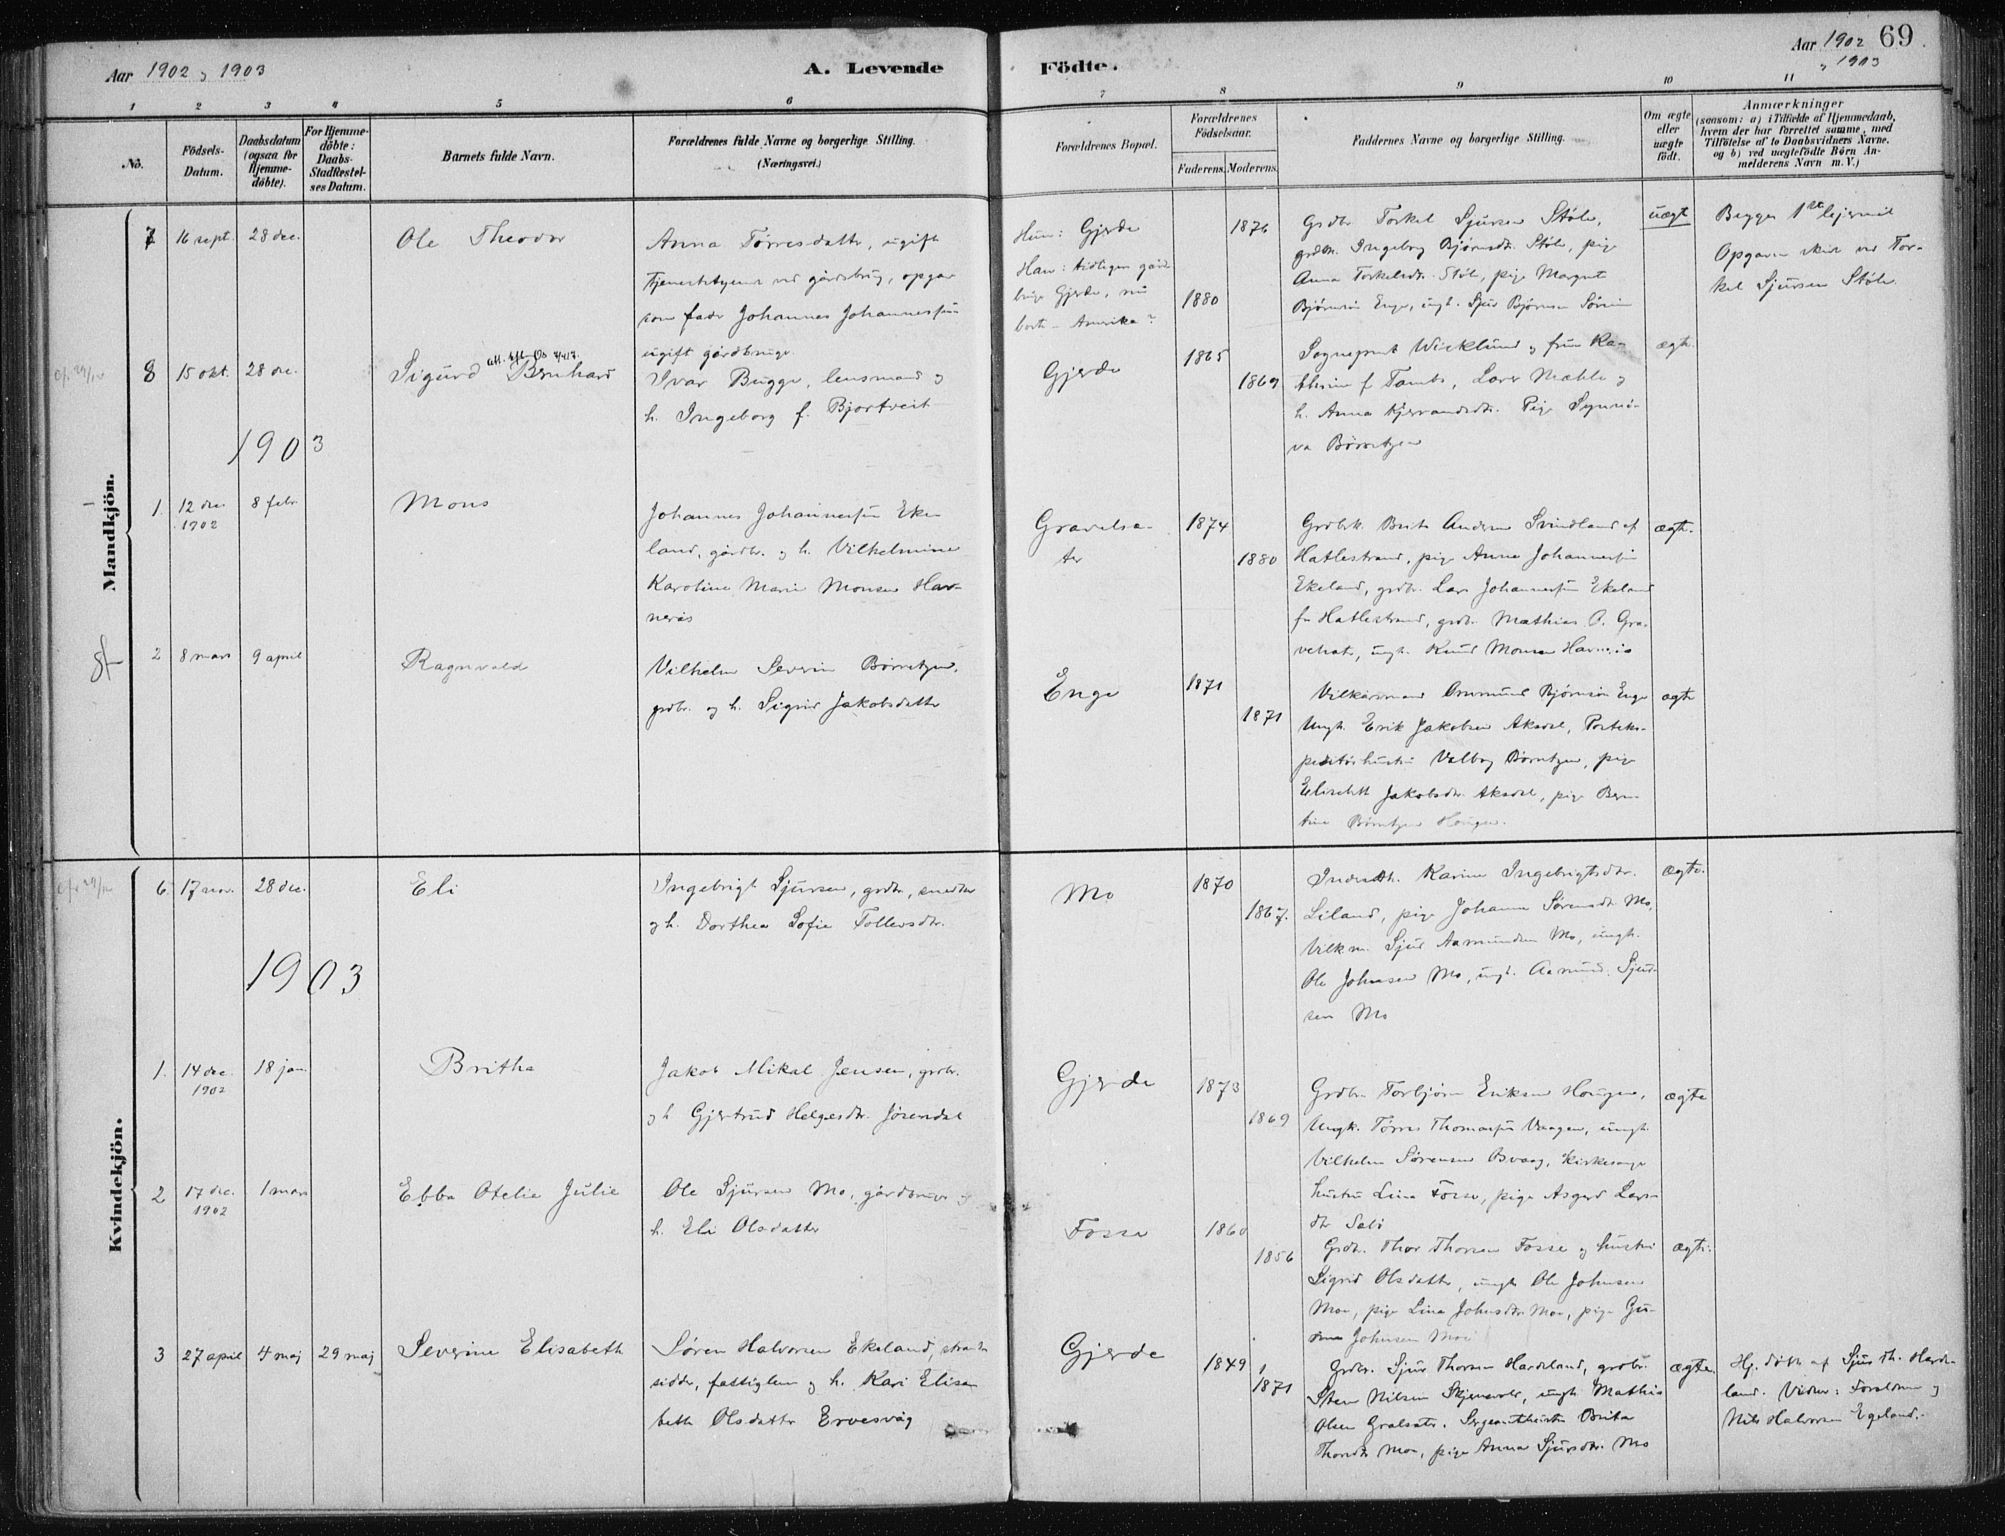 Aar 1902 og 1903
A. Levende
Födte.
Aar 1902 69
" 1903
1 2 3 4 5 6 7 8 9 10 11
No.
Födsels-
Datum.
Daabsdatum
(ogsaa for
Hjemme-
döbte).
For Hjemme-
döbte:
Daabs-
Stadfæstel-
ses Datum.
Barnets fulde Navn.
Forældrenes fulde Navne og borgerlige Stilling.
(Næringsvei.)
Forældrenes Bopæl.
Forældrenes
Födselsaar.
Faderens. Moderens.
Faddernes Navne og borgerlige Stilling.
Om ægte
eller
uægte
födt.
Anmærkninger
(saasom: a) i Tilfælde af Hjemmedaab,
hvem der har forrettet samme, med
Tilföielse af to Daabsvidners Navne,
og b) ved uægtefödte Börn An-
melderens Navn m. V.)
Mandkjön.
7 16 sept. 28 dec.
Ole Theodor
Anna Tørresdatter, ugift
tjenestetyende ved gårdsbrug, opgav
som fader Johannes Johannessen
ugift gårdbruger
Hun: Gjerde
Han: tidligere gård
bruger Gjerde, nu
bort - Amerika?
1876
1880
Grdbr Torkel Sjursen Støle,
grdbr. Ingeborg Bjørnsdtr. Støle, pige
Anna Torkelsdtr. Støle, pige Margret
Bjørnsen Enge, ungk. Sjur Bjørnsen
uægt
Begges 1ste lejermål
Opgaven sket ved Tor-
kel Sjursen Støle
8 15 okt. 28 dec.
Sigurd Bernhard
Ivar Bugge, lensmand og
h. Ingeborg f. Bjortveit
Gjerde
1865
1869
Sogneprest Wicklund og frue Ka-
thrine f. Tambs, Lars Mæhle og
h. Anna Kjervandsdtr. Pige Synnø-
va Børretzen
ægt.
1903
1. 12 dec. 8 febr
1902
Mons
Johannes Johannessen Eke
land, gårdbr. og h. Vilhelmine
Karoline Marie Monsen Hav-
nerås
Gravelsæ-
ter
1874
1880
Grdbrk. Brita Andersen Svindland af
Hatlestrand, pige Anna Johannessen
Ekeland, grdbr. Lars Johannessen Ekeland
fr Hatlestrand, grdbr. Mathias O. Gra-
velsæter, ungk. Knud Monsen Havnerås
ægte.
2 8 mars 9 april
Ragnvald
Vilhelm Severin Børretzen,
grdbr. og h. Sigrid Jakobsdatter
Enge
1871
1871
Vilkårsmand Ommund Bjørnsen Enge
Ungk. Erik Jakobsen Aksdal, Posteks-
peditørhustru Valborg Børretzen, pige
Elisabeth Jakobsdtr. Aksdal, pige Ber-
tine Børretzen Hougen.
ægte
Kvindekjön.
6. 17 nov. 28 dec.
Eli
Ingebrigt Sjursen, grdbr., snedker
og h. Dorthea Sofie Tollevsdtr.
Mo
1870
1867.
Karine Ingebrigtsdtr.
Liland, pige Johanna Sørensdtr. Mo,
Vilkm. Sjur Aamundsen Mo, ungk.
Ole Johnsen Mo, ungk. Aamund Sjur-
sen Mo
ægte.
1903
1. 14 dec. 18 jan
1902
Britha
Jakob Mikal Jensen, grdbr.
og h Gjertrud Helgesdtr. Jøsendal
Gjerde
1873
1869
Grdbr. Torbjørn Eriksen Hougen,
Ungk. Tørres Thomassen Vaagen, ungk.
Vilhelm Sørensen Buaag, kirkesanger
hustru Lina Fosse, pige Asgerd Lars-
dtr Sæbø
ægte
2 17 dec. 1 mars
1902
Ebba Otelie Julie
Ole Sjursen Mo, gårdbruger og
h. Eli Olsdatter
Fosse
1860
1856
Grdbr. Thor Thorsen Fosse og hustru
Sigrid Olsdatter, ungk. Ole Johnsen
Moe, pige Lina Johnsdtr. Moe, pige Gu-
rina Johnsen Moe
ægte.
3 27 april 4 maj 29 maj
Severine Elisabeth
Søren Halvorsen Ekeland, strand
sidder, fattiglem og h. Kari Elisa
beth Olsdatter Ervesvåg
Gjerde
1849
1871
Grdbr. Sjur Thorsen Hardeland, grdbr.
Sten Nilsen Skjeravold, ungk. Mathis
Olsen Gralsæter. Sergeanthustru Brita
Thorsdtr Moe, pige Anna Sjursdtr. Mo
ægte
Hj. døbt af Sjur Th. Harde-
land. Vidner: Forældrene og
Nils Halvorsen Egeland.